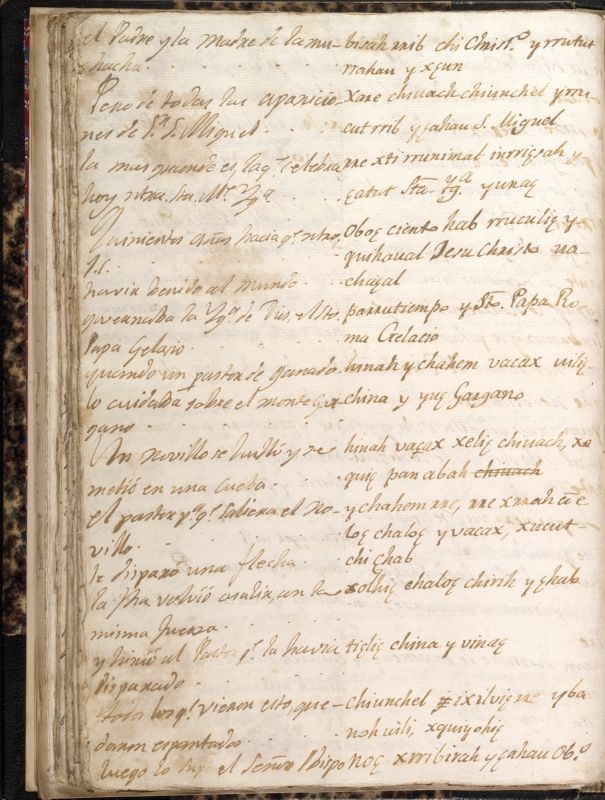 el Padre y la Madre de la mu- bisah rrib chi Christo y rrutut
chacha. rrahau y xɛun
Pero de todas las aparicio- Xare chiuach chiunchel y rru-
nes de Sr. S. Miguel cut rrib y ɛahau S. Miguel
la mas grande es la q.e celebra rre xti rrunimal inrriɛrah y
hoy ntra. Sta. Me. Yga. ɛatut Sta. yga. yunaɛ
Quinientos años hacia q.e ntro. Oboɛ ciento hab rruculiɛ y
S.r quihaual Jesu Christo ua-
havia venido al mundo chaɛal
governaba la Yga. de Dios el Sto. parrutiempo y Sto. Papa Ro-
Papa Gelasio ma Gelacio
quando un pastor de ganado hinah y chahem vacax uiliɛ-
lo cuidaba sobre el monte Gar- china y yuɛ Gargano
gano
Un novillo se huyó y se hinah vaɛax xeliɛ chiuach, xo
metió en una cueba quiɛ pan abah chiuach
el pastor p.r q.e saliera el no- y chahem rre, rre xnnah
villo loɛ chaloɛ y vacax, xucut-
le disparó una flecha chi ɛhab
la fha volvió a salir, con la xolhiɛ chaloɛ chirih y ɛhab
misma fuerza
y hirió al Pastor q.e la havia tiɛliɛ china y vinaɛ
disparado
todos los q.e vieron esto, que- Chiunchel xixilviɛ rre y ba
daron espantados noh uili, xquiyohiɛ
luego lo supo el Señor Obispo Noɛ xrribirah y ɛahau Obo.